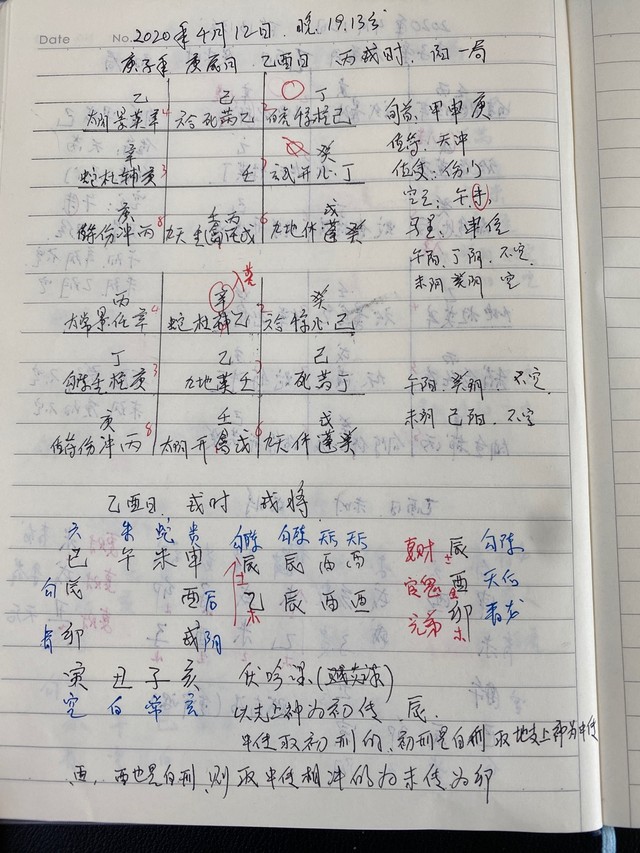 Date No. 2020年4月12日. 晚. 19.13分
庚子年 庚辰月 乙酉日 丙戌时. 阳一局
乙 己 丁
景英辛 六合死芮乙 白虎惊柱己
旬首. 甲申庚
值符. 天冲
辛 癸
蛇杜辅亥 壬 玄武开心丁
值使: 伤门
空亡: 午未
庚 壬丙 戊
伤冲丙 九天生禽任戊 九地休蓬癸
马星: 申位
午阳. 丁阴. 不空
未阴 癸阴 空
丙 辛 英 癸
太常景任辛 蛇杜辅乙 六合惊心己
丁 乙 己
勾陈生柱亥 九地英壬 死芮丁
午阳. 癸阴. 不空
庚 壬 戊
值符伤冲丙 太阴开禽戊 九天休蓬癸
未阴 己阳. 不空
乙酉日. 戌时 戌将
六 朱 蛇 贵 勾陈 勾陈 天后 天后
巳 午 未 申 辰 辰 酉 酉 妻财 辰 勾陈
勾 辰 酉 后 乙 辰 酉 酉 官鬼 酉 天后
青 卯 戌 阴 兄弟 卯 青龙
寅 丑 子 亥 伏吟课
空 白 常 玄 以克上神为初传 辰.
中传取初刑的, 初刑是自刑 取地支上神为中传
酉, 酉也是自刑, 则取中传相冲的为末传为卯